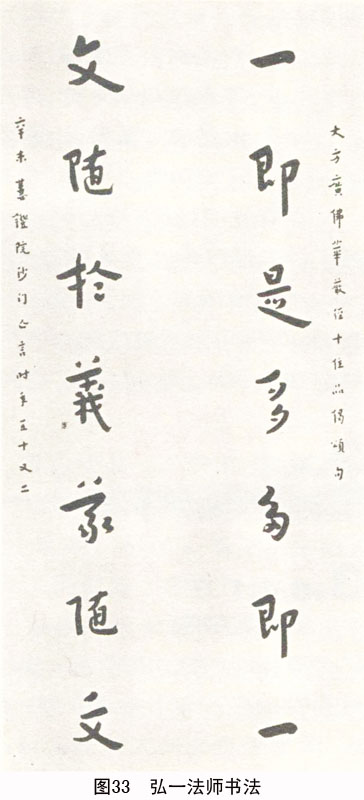 大方廣佛華嚴經十住品偈頌句
一即是多多即一
文随於義義随文
辛未慧鐙院沙门亡言时年五十又二
图33 弘一法师书法